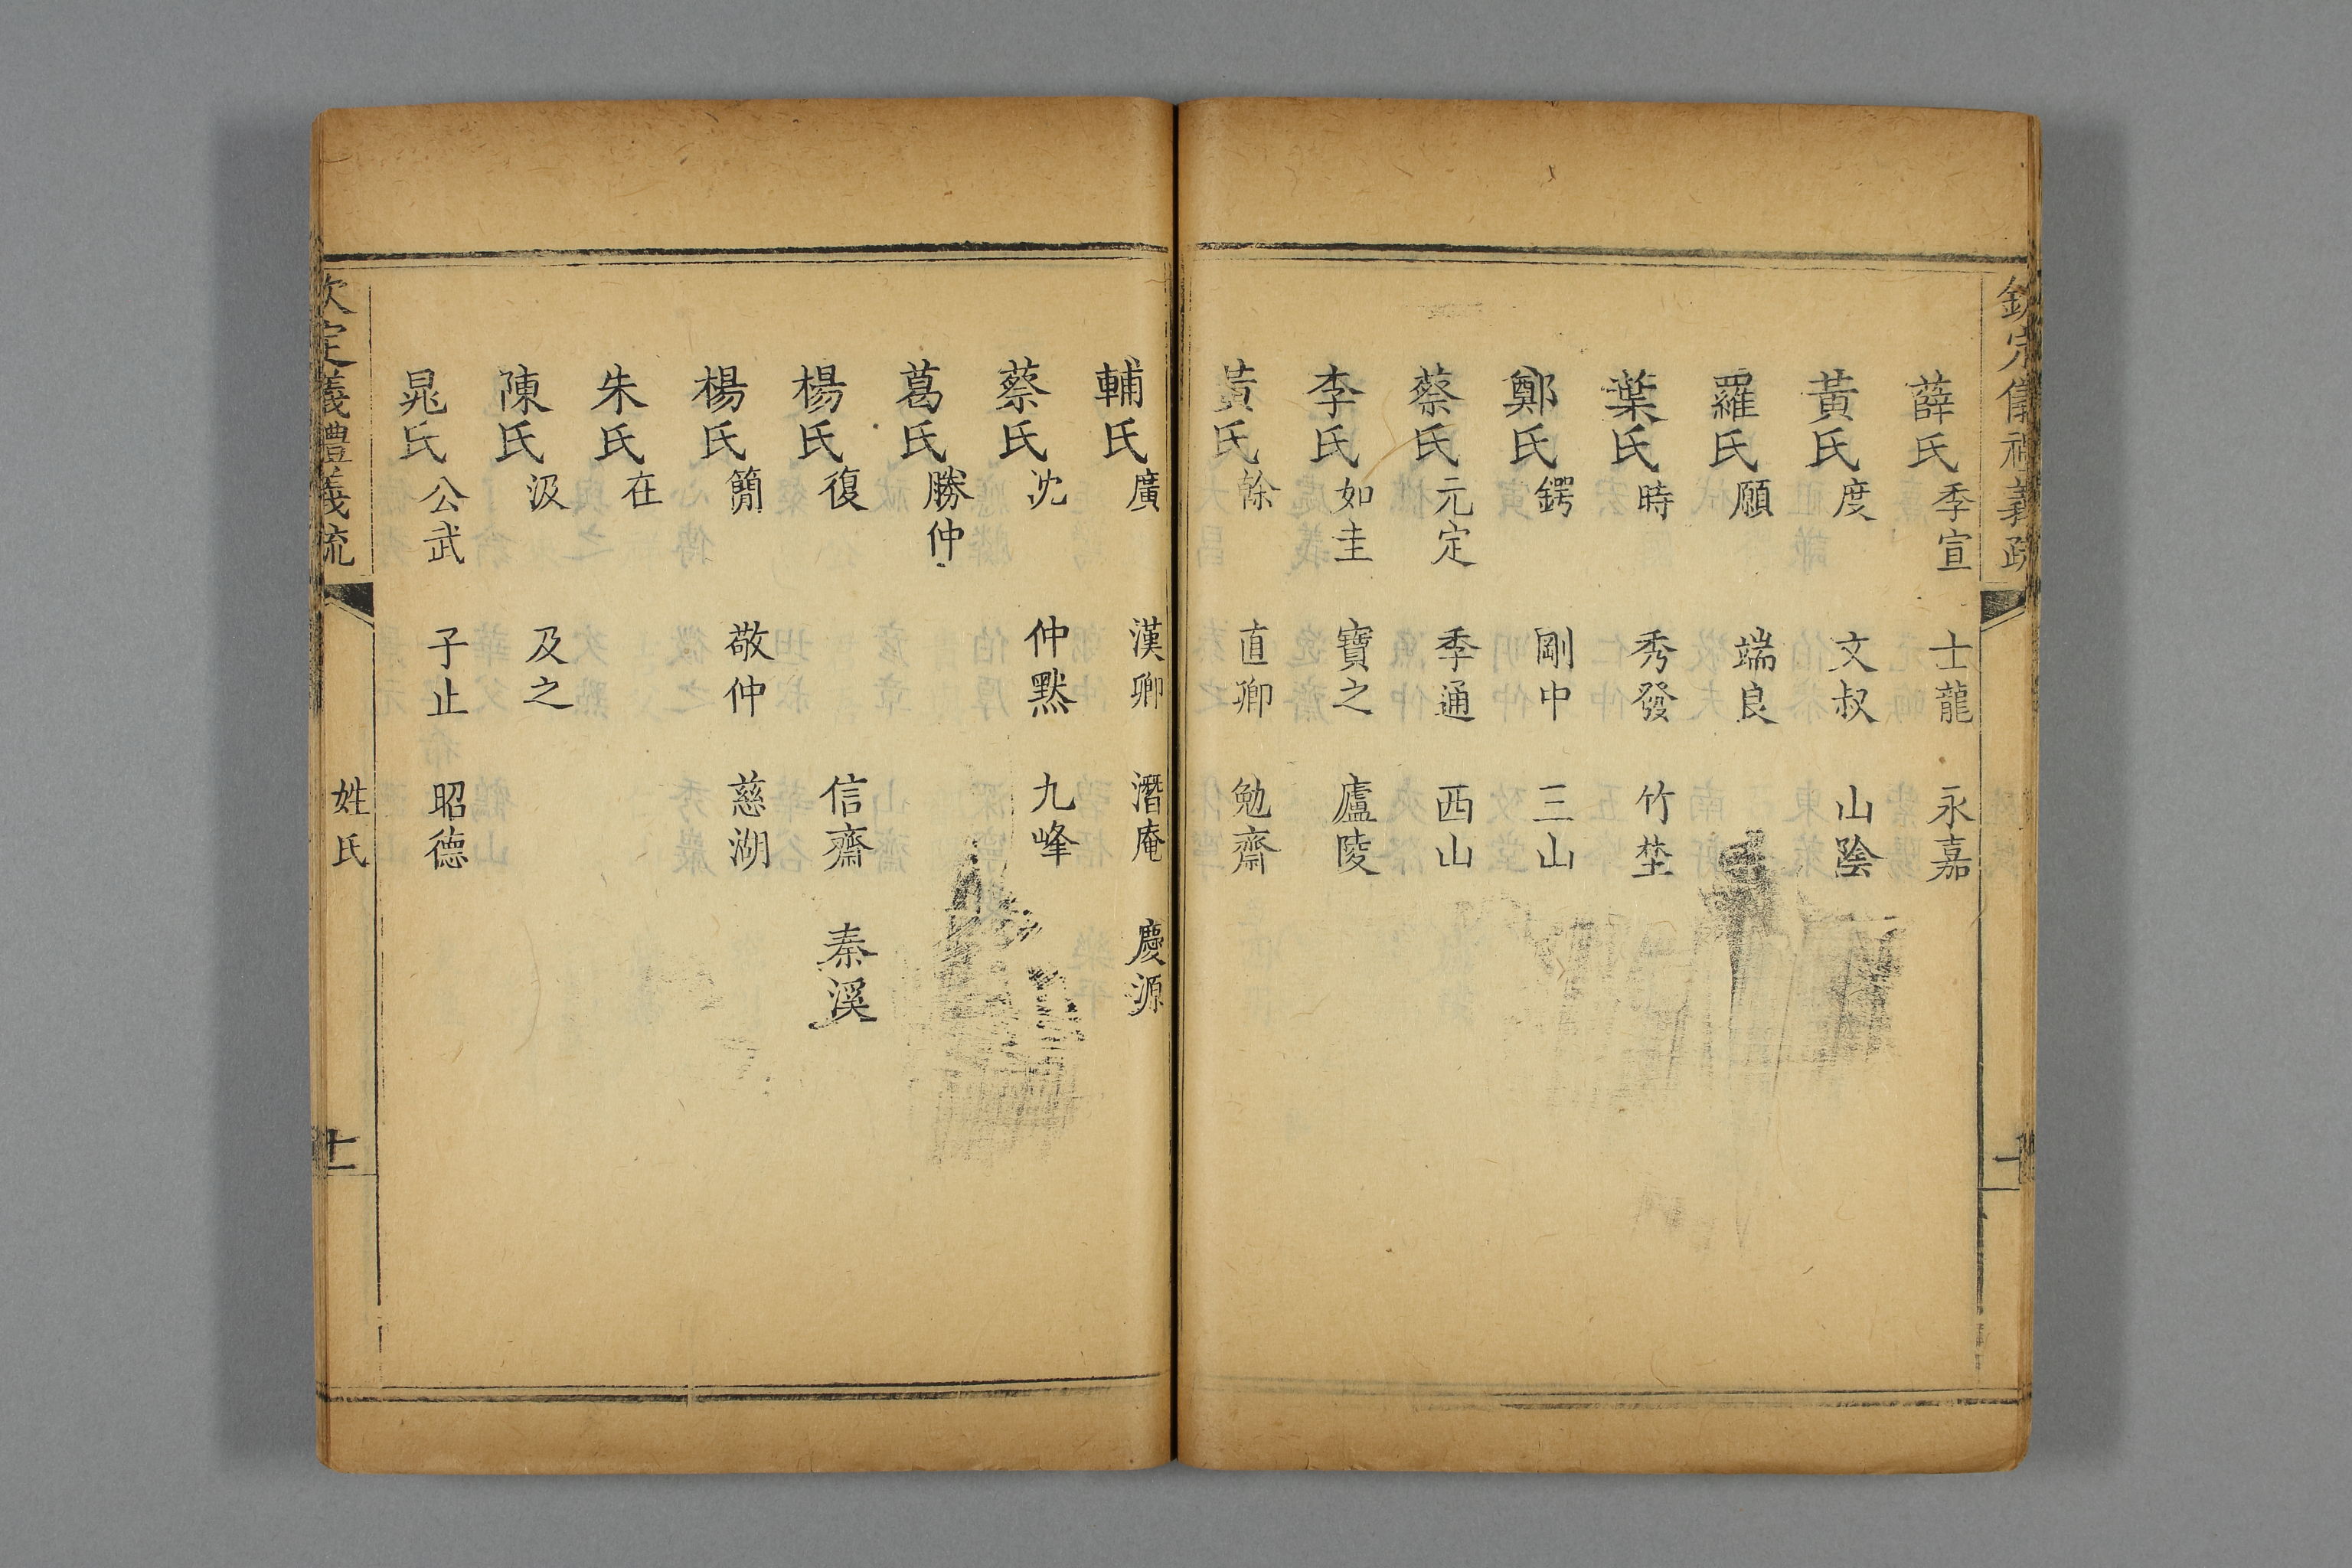 薛氏 季宣 士龍 永嘉
黃氏 度 文叔 山陰
羅氏 願 端良
葉氏 時 秀發 竹埜
鄭氏 鍔 剛中 三山
蔡氏 元定 季通 西山
李氏 如圭 寶之 廬陵
黃氏 榦 直卿 勉齋
輔氏 廣 漢卿 潛庵 慶源
蔡氏 沈 仲默 九峰
葛氏 勝仲
楊氏 復 信齋 秦溪
楊氏 簡 敬仲 慈湖
朱氏 在
陳氏 汲 及之
晁氏 公武 子止 昭德
欽定儀禮義疏 姓氏 十一